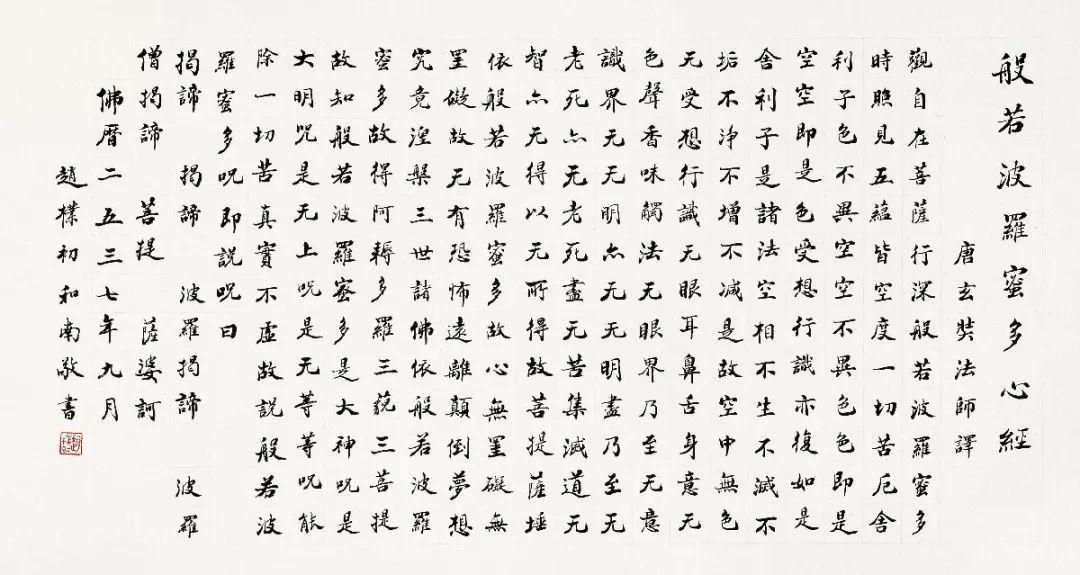 般若波羅蜜多心經
唐玄奘法師譯
觀自在菩薩行深般若波羅蜜多
時照見五蘊皆空度一切苦厄舍
利子色不異空空不異色色即是
空空即是色受想行識亦復如是
舍利子是諸法空相不生不滅不
垢不净不增不减是故空中無色
无受想行識无眼耳鼻舌身意无
色聲香味觸法无眼界乃至无意
識界无无明亦无无明盡乃至无
老死亦无老死盡无苦集滅道无
智亦无得以无所得故菩提薩埵
依般若波羅蜜多故心無罣礙無
罣礙故无有恐怖遠離顛倒夢想
究竟涅槃三世諸佛依般若波羅
蜜多故得阿耨多羅三藐三菩提
故知般若波羅蜜多是大神咒是
大明咒是无上咒是无等等咒能
除一切苦真實不虛故説般若波
羅蜜多咒即説咒曰
揭諦 揭諦 波羅揭諦 波羅
僧揭諦 菩提 薩婆訶
佛曆二五三七年九月
趙樸初和南敬書